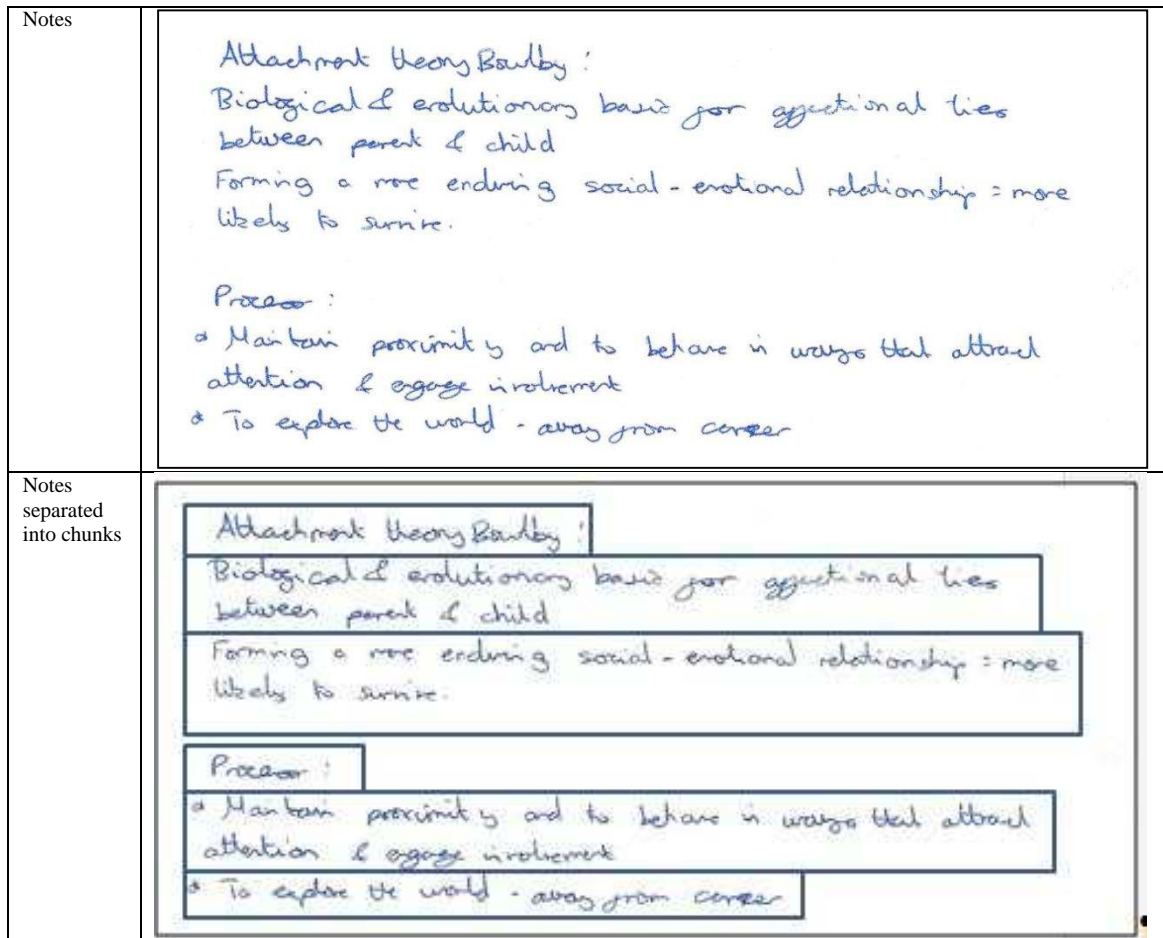 Notes
Attachment theory Boulby :
Biological & evolutionary basis for affectional ties
between parent & child
Forming a more enduring social-emotional relationship = more
likely to survive.
Process :
* Maintain proximity and to behave in ways that attract
attention & engage involvement
* To explore the world - away from career
Notes
separated
into chunks
Attachment theory Boulby :
Biological & evolutionary basis for affectional ties
between parent & child
Forming a more enduring social-emotional relationship = more
likely to survive.
Process :
* Maintain proximity and to behave in ways that attract
attention & engage involvement
* To explore the world - away from career